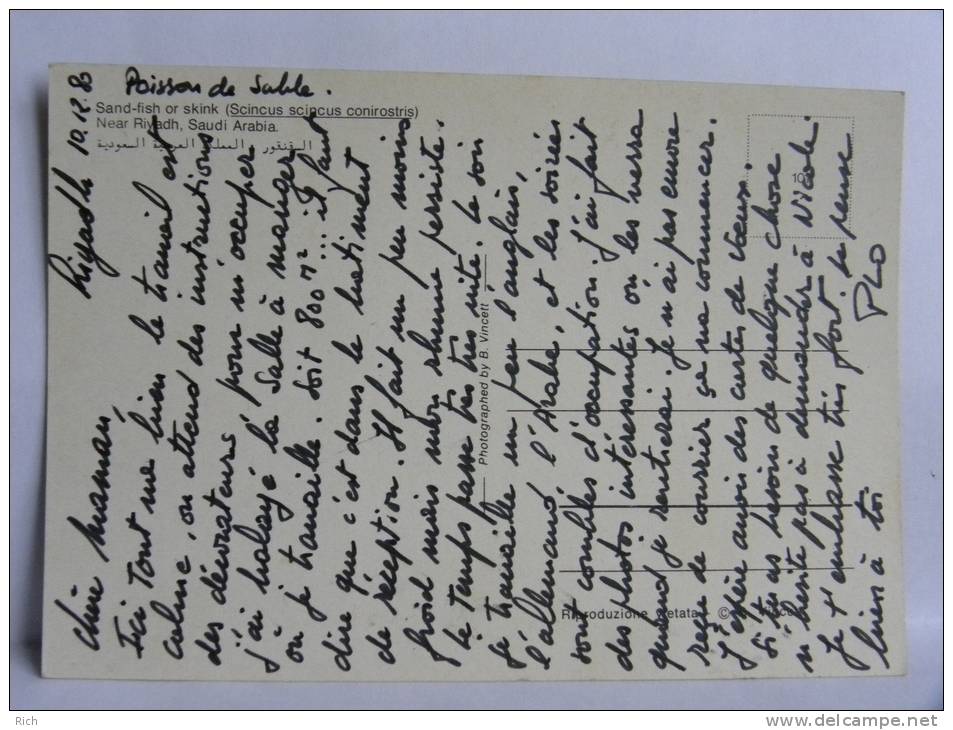 Poisson de Sable.
Sand-fish or skink (Scincus scincus conirostris)
Near Riyadh, Saudi Arabia.
السقنقور - المملكة العربية السعودية
Riyadh 10.12.85
Chère maman
Ici tout va bien le travail est
calme, on attend des instructions
des décorateurs pour m'occuper
j'ai balayé la salle à manger
où je travaille. soit 800 m² ... il faut
dire que c'est dans le batiment
de réception. Il fait un peu moins
froid mais mon rhume persiste.
Le temps passe très très vite. Le soir
je travaille un peu l'anglais,
l'allemand l'Arabe, et les soirées
sont comblés d'occupation. J'ai fait
des photos intéressantes, on les verra
quand je rentrerai. Je n'ai pas encore
reçu de courrier ça va commencer.
J'espère avoir des cartes de vœux
Si tu as besoin de quelque chose
n'hésite pas à demander à Nicole.
Je t'embrasse très fort. Je pense
bien à toi
Photographed by B. Vincett
Riproduzione vietata
Rich
delcampe.net